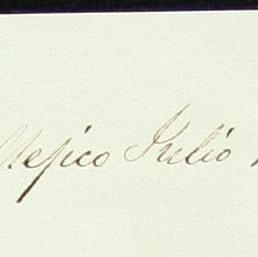 Mejico Julio